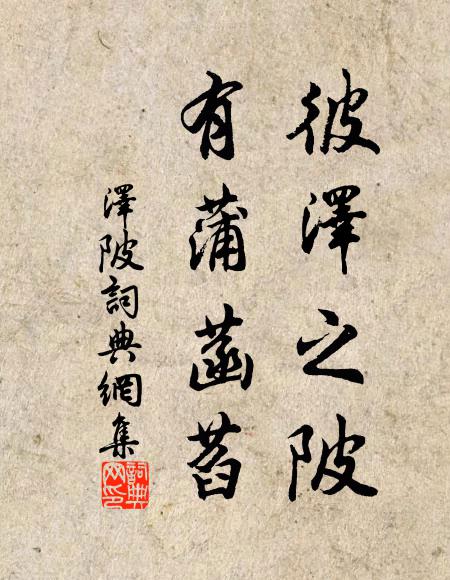 彼澤之陂
有蒲菡萏
澤陂詞典網集
詞典網印